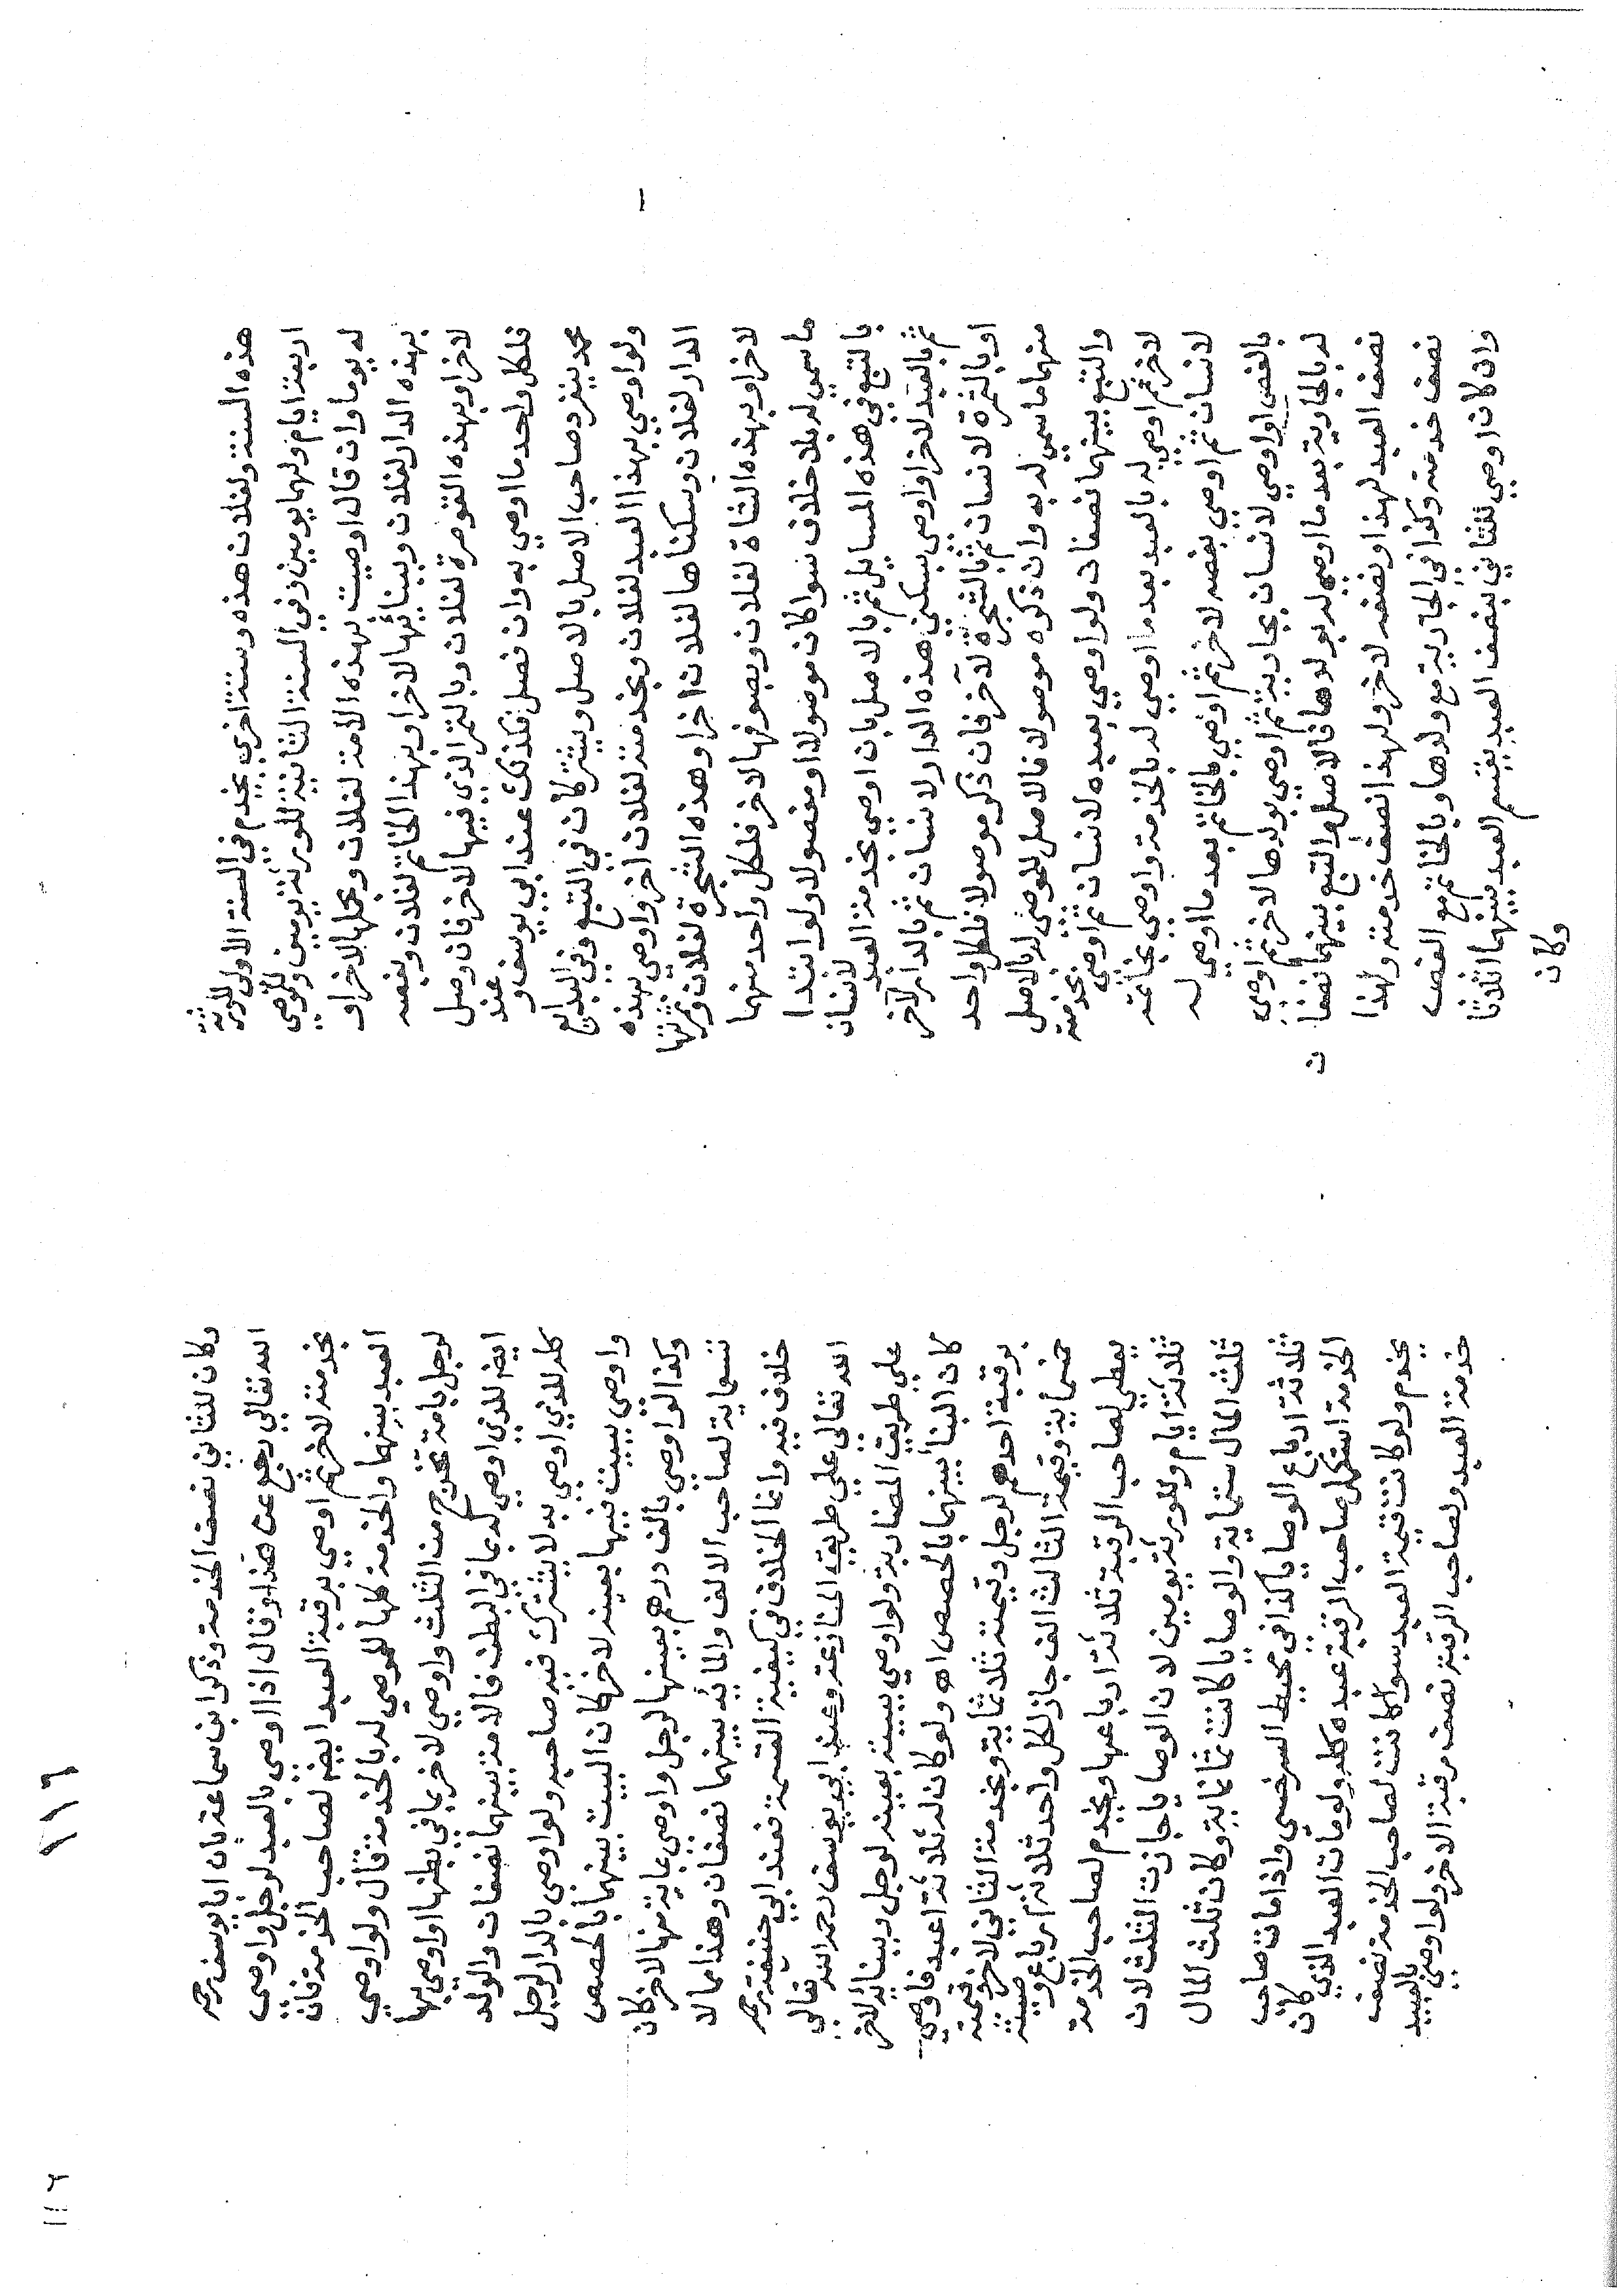 هذه السنة ولفلان هذه وسنة اخري يخدم في السنة الاولي للورثة
اربعة ايام ولهما يومين وفي السنة الثانية للورثة يومين وللموصي
له يوما وان قال اوصيت بهذه الامة لفلان وبحملها لاخر او
بهذه الدار لفلان وببنائها لاخر او بهذا الخاتم لفلان وبفصه
لاخر او بهذه القوصرة لفلان وبالتمر الذي فيها لاخر فان وصل
فلكل واحد ما اوصي به وان فصل فكذلك عند ابي يوسف وعند
محمد ينفرد صاحب الاصل بالاصل ويشتركان في التبع وفي البدايع
ولو اوصي بهذا العبد لفلان وبخدمته لفلان اخر واوصي بهذه
الدار لفلان وسكناها لفلان اخر او هذه الشجرة لفلان وثمرتها
لاخر او بهذه الشاة لفلان وبصوفها لاخر فلكل واحد منهما
ما سمي له بلا خلاف سوا كان موصولا او مفصولا ولو ابتدا
بالتبع في هذه المسايل ثم بالاصل بان اوصي بخدمة العبد لانسان
ثم بالعبد لاخر او اوصي بسكني هذه الدار لانسان ثم بالدار لآخر
او بالثمرة لانسان ثم بالشجرة لآخر فان ذكر موصولا فلكل واحد
منهما ما سمي له به وان ذكره موصولا فالاصل للموصي له بالاصل
والتبع بينهما نصفان ولو اوصي بعبده لانسان ثم اوصي بخدمته
لاخر ثم اوصي له بالعبد بعد ما اوصي له بالخدمة واوصي بخاتمه
لانسان ثم اوصي بفصه لاخر ثم اوصي بالخاتم بعد ما اوصي له
بالفص او اوصي لانسان بجارية ثم اوصي بولدها لاخر ثم اوصي
له بالجارية بعد ما اوصي له بولدها فالاصل والتبع بينهما نصفان
نصف العبد لهذا ونصفه لاخر ولهذا نصف خدمته ولهذا
نصف خدمته وكذا في الجارية مع ولدها وبالخاتم مع الفص
وان كان اوصي للثاني بنصف العبد يقسم العبد بينهما اثلاثا
وكان
وكان للثاني نصف الخدمة وذكر ابن سماعة بان ابا يوسف رحمه
الله تعالي رجع عن هذا وقال اذا اوصي بالعبد لرجل واوصي
بخدمته لاخر ثم اوصي برقبة العبد ايضا لصاحب الخدمة فان
العبد بينهما والخدمة كلها للموصي له بالخدمة قال ولو اوصي
لرجل بامة تخرج من الثلث واوصي لاخر بما في بطنها او اوصي بها
ايضا للذي اوصي له بما في البطن فالامة بينهما نصفان والولد
كله للذي اوصي به لا يشترك فيه صاحبه ولو اوصي بالدار لرجل
واوصي ببيت فيها بعينه لاخر كان البيت بينهما بالحصص
وكذا لو اوصي بالف درهم بعينها لرجل واوصي بماية منها لاخر كان
تسعماية لصاحب الالف والماية بينهما نصفان وهذا مما لا
خلاف فيه وانما الخلاف في كيفية القسمة فعند ابي حنيفة رحمه
الله تعالي علي طريق المنازعة وعند ابي يوسف رحمه الله تعالي
علي طريق المضاربة ولو اوصي ببيت بعينه لرجل وببنائه لاخر
كان البنا بينهما بالحصص اه ولو كان له ثلاثة اعبد فاوصي
برقبة احدهم لرجل وقيمته ثلاثماية وبخدمة الثاني لاخر وقيمته
خمسماية وقيمة الثالث الف جاز لكل واحد ثلاثة ارباع وصيته
يعطي لصاحب الرقبة ثلاثة ارباعها ويخدم لصاحب الخدمة
ثلاثة ايام وللورثة يومين لان الوصايا جازت الثلث لان
ثلث المال ستماية والوصايا كانت ثمانماية وكان ثلث المال
ثلاثة ارباع الوصايا كذا في محيط السرخسي واذا مات صاحب
الخدمة استكمل صاحب الرقبة عبده كله ولو مات العبد الذي كان
يخدم ولو كانت قيمة العبد سوا كانت لصاحب الخدمة نصف
خدمة العبد ولصاحب الرقبة نصف رقبة الاخر ولو اوصي بالعبيد
١١٦
١١٦